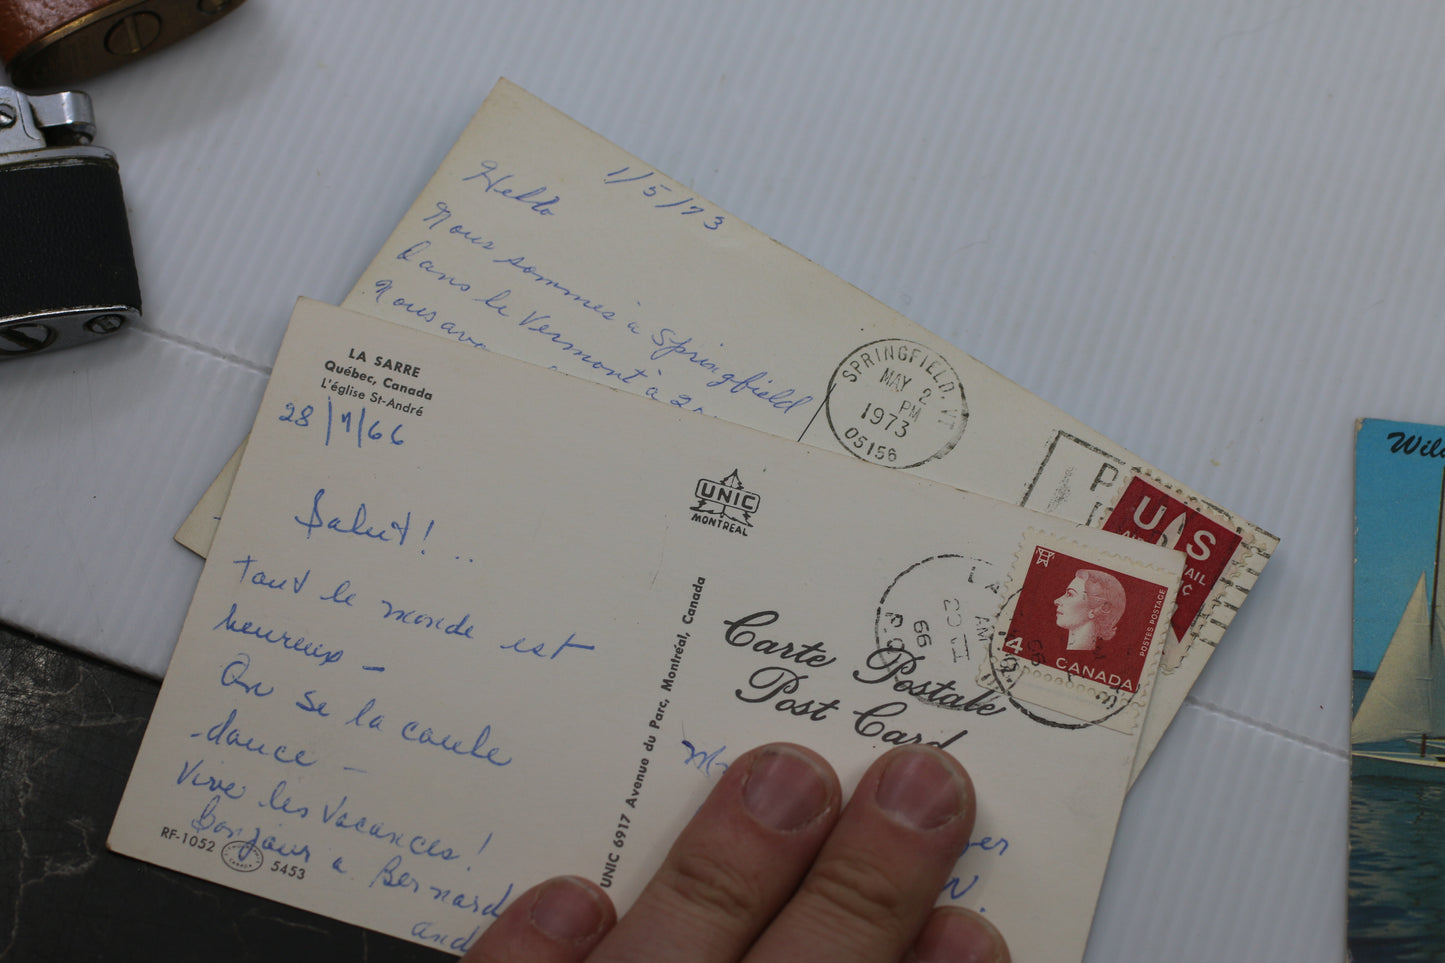 1/5/73
Hello
Nous sommes à Springfield
dans le Vermont à
Nous
SPRINGFIELD, VT
MAY 2
PM
1973
05156
US
AIR MAIL
¢
LA SARRE
Québec, Canada
L'église St-André
28/7/66
Salut!..
Tout le monde est
heureux -
On se la coule
-douce -
Vive les Vacances!
Bonjour a Bernard
and
RF-1052
5453
UNIC
MONTREAL
UNIC 6917 Avenue du Parc, Montréal, Canada
Carte Postale
Post Card
AM
66
4
CANADA
POSTES POSTAGE
N.